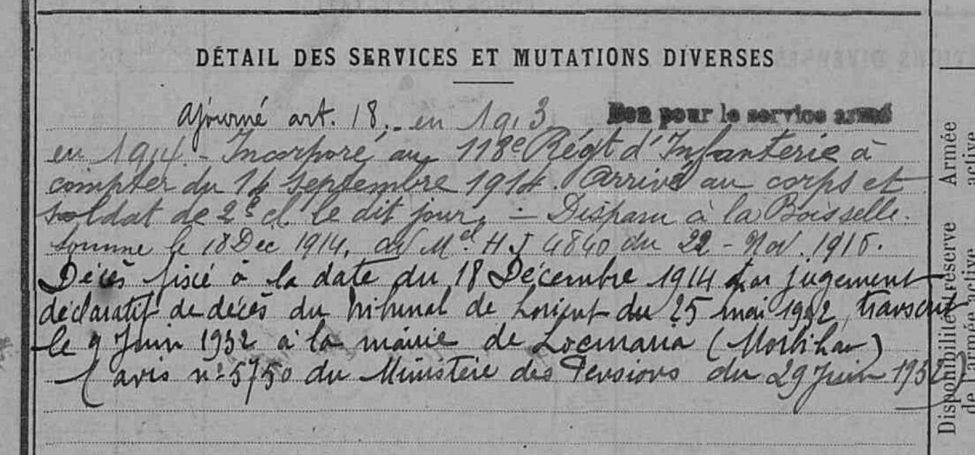 DÉTAIL DES SERVICES ET MUTATIONS DIVERSES
Ajourné art. 18. en 1913 Bon pour le service armé
en 1914 - Incorporé au 118e Régt d'Infanterie à
compter du 14 Septembre 1914. Arrivé au corps et
soldat de 2e cl le dit jour. - Disparu à la Boisselle.
Somme le 18 Déc 1914, av Mel HJ 4840 du 22 - Nov. 1916.
Décès fixé à la date du 18 Décembre 1914 par jugement
déclaratif de décès du tribunal de Lorient du 25 mai 1932, transcrit
le 9 Juin 1932 à la mairie de Locmaria (Morbihan)
(avis n° 5750 du Ministère des Pensions du 29 Juin 1932)
Armée
active
Disponibilité réserve
de l'armée active